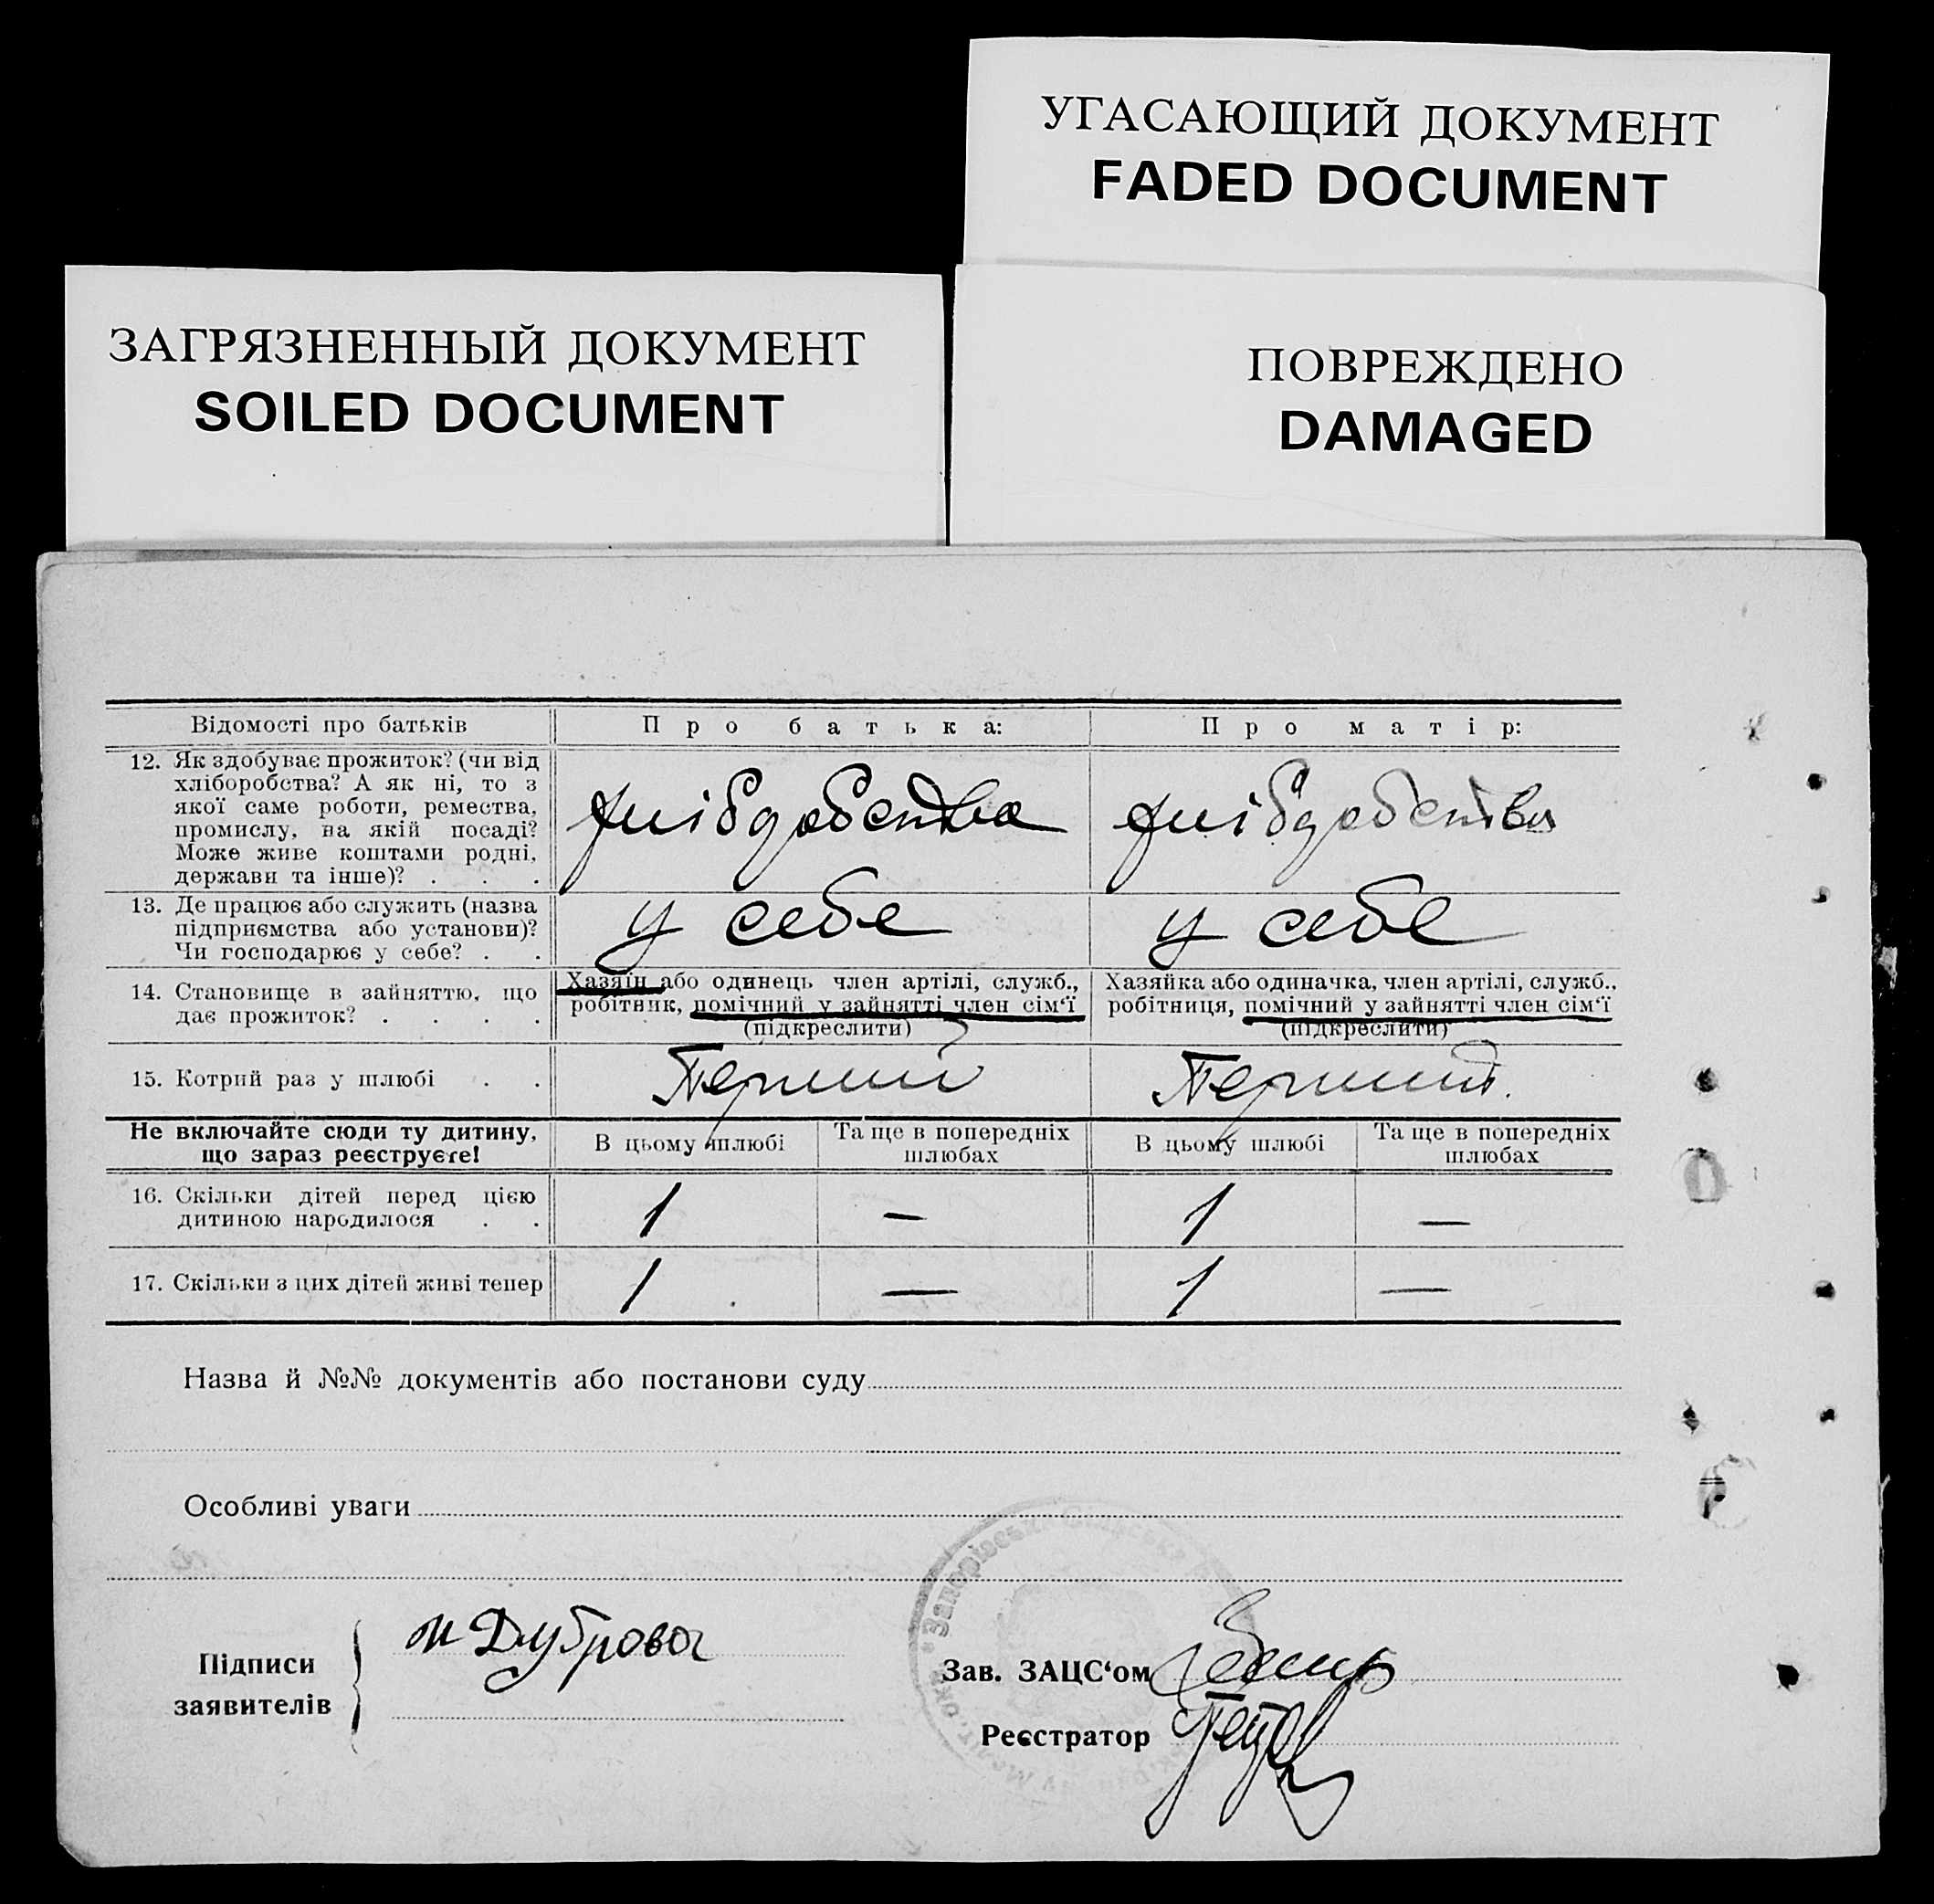 УГАСАЮЩИЙ ДОКУМЕНТ
FADED DOCUMENT
ЗАГРЯЗНЕННЫЙ ДОКУМЕНТ
SOILED DOCUMENT
ПОВРЕЖДЕНО
DAMAGED
Відомості про батьків
Про батька:
Про матір:
12. Як здобуває прожиток? (чи від
хліборобства? А як ні, то з
якої саме роботи, ремества,
промислу, на якій посаді?
Може живе коштами родні,
держави та інше)? . . .
хлібдобства
хлібдобства
13. Де працює або служить (назва
підприємства або установи)?
Чи господарює у себе? . .
у себе
у себе
14. Становище в зайняттю, що
дає прожиток? . . . .
Хазяїн або одинець член артілі, служб.,
робітник, помічний у зайнятті член сім'ї
(підкреслити)
Хазяйка або одиначка, член артілі, служб.,
робітниця, помічний у зайнятті член сім'ї
(підкреслити)
15. Котрий раз у шлюбі . .
Перший
Перший
Не включайте сюди ту дитину,
що зараз реєструєте!
В цьому шлюбі
Та ще в попередніх
шлюбах
В цьому шлюбі
Та ще в попередніх
шлюбах
16. Скільки дітей перед цією
дитиною народилося . .
1 — 1 —
17. Скільки з цих дітей живі тепер
1 — 1 —
Назва й №№ документів або постанови суду
Особливі уваги
Підписи
заявителів
м Дуброва
Зав. ЗАЦС'ом
Реєстратор
Запорізська Сільська